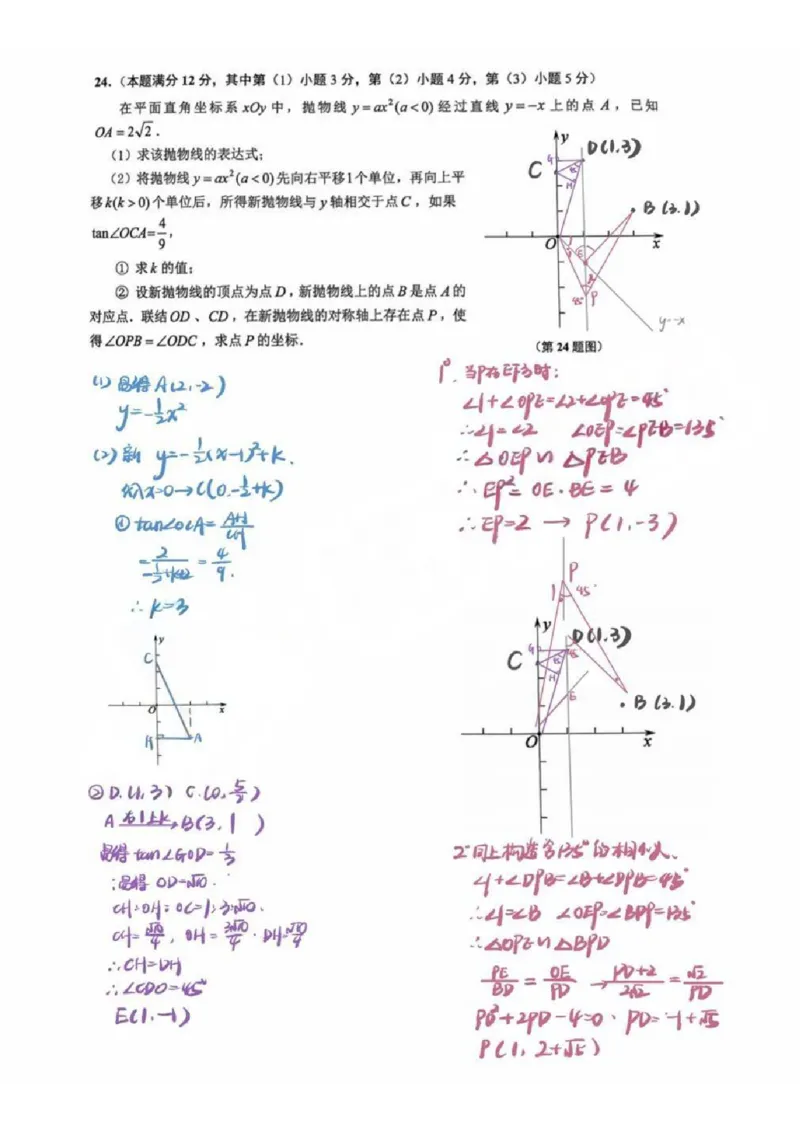 24.（本题满分12分，其中第（1）小题3分，第（2）小题4分，第（3）小题5分）
在平面直角坐标系xOy中，抛物线y=ax²(a<0)经过直线y=-x上的点A，已知
OA=2√2.
（1）求该抛物线的表达式；
（2）将抛物线y=ax²(a<0)先向右平移1个单位，再向上平
移k(k>0)个单位后，所得新抛物线与y轴相交于点C，如果
tan∠OCA=4/9，
① 求k的值；
② 设新抛物线的顶点为点D，新抛物线上的点B是点A的
对应点．联结OD、CD，在新抛物线的对称轴上存在点P，使
得∠OPB=∠ODC，求点P的坐标．
y
D(1,3)
G
C
45°
H
B(3,1)
O
x
1
E
2
45°
P
y=-x
（第24题图）
(1) 易得A(2,-2)
y=-1/2x²
(2) 新 y=-1/2(x-1)²+k.
代入x=0→C(0,-1/2+k)
① tan∠OCA=AH/CH
=2/(-1/2+k+2)=4/9.
∴k=3
y
C
O
x
H
A
② D(1,3) C(0,5/2)
A 右1上k B(3,1)
易得tan∠GOD=1/3
易得OD=√10.
CH:OH:OC=1:3:√10.
CH=√10/4，OH=3√10/4. DH=√10/4
∴CH=DH
∴∠CDO=45°
E(1,-1)
1°. 当P在E下方时：
∠1+∠OPE=∠2+∠OPE=45°
∴∠1=∠2 ∠OEP=∠PEB=135°
∴△OEP∽△PEB
∴EP²=OE·BE=4
∴EP=2 → P(1,-3)
P
1
45°
y
G
D(1,3)
C
45°
45°
H
E
B(3,1)
O
x
2°同上构造含135°的相似.
∠1+∠DPB=∠B+∠DPB=45°
∴∠1=∠B ∠OEP=∠BDP=135°
∴△OPE∽△BPD
PE/BD=OE/PD → (PD+2)/2√2=√2/PD
PD²+2PD-4=0. PD=-1+√5
P(1,2+√5)